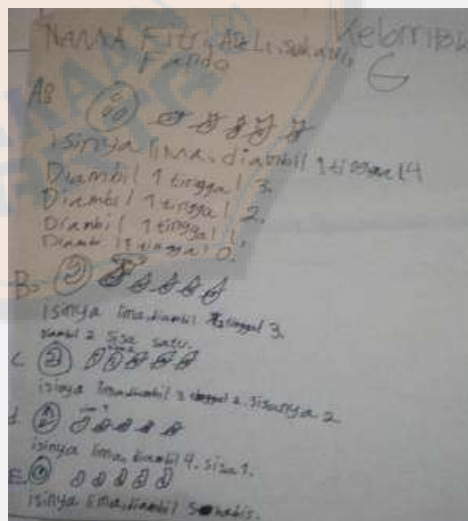 NAMA Fitri, Azeli, sukani, Kelompok
Farida 6
A8
isinya lima. diambil 1 tinggal 4
Diambil 1 tinggal 3.
Diambil 1 tinggal 2.
Diambil 1 tinggal 1.
Diambil 1 tinggal 0.
B.
isinya lima. diambil 2 tinggal 3.
diambil 2 sisa satu.
C
isinya lima diambil 3 tinggal 2. sisanya 2
d.
isinya lima, diambil 4. sisa 1.
E.
isinya lima, diambil 5 habis.